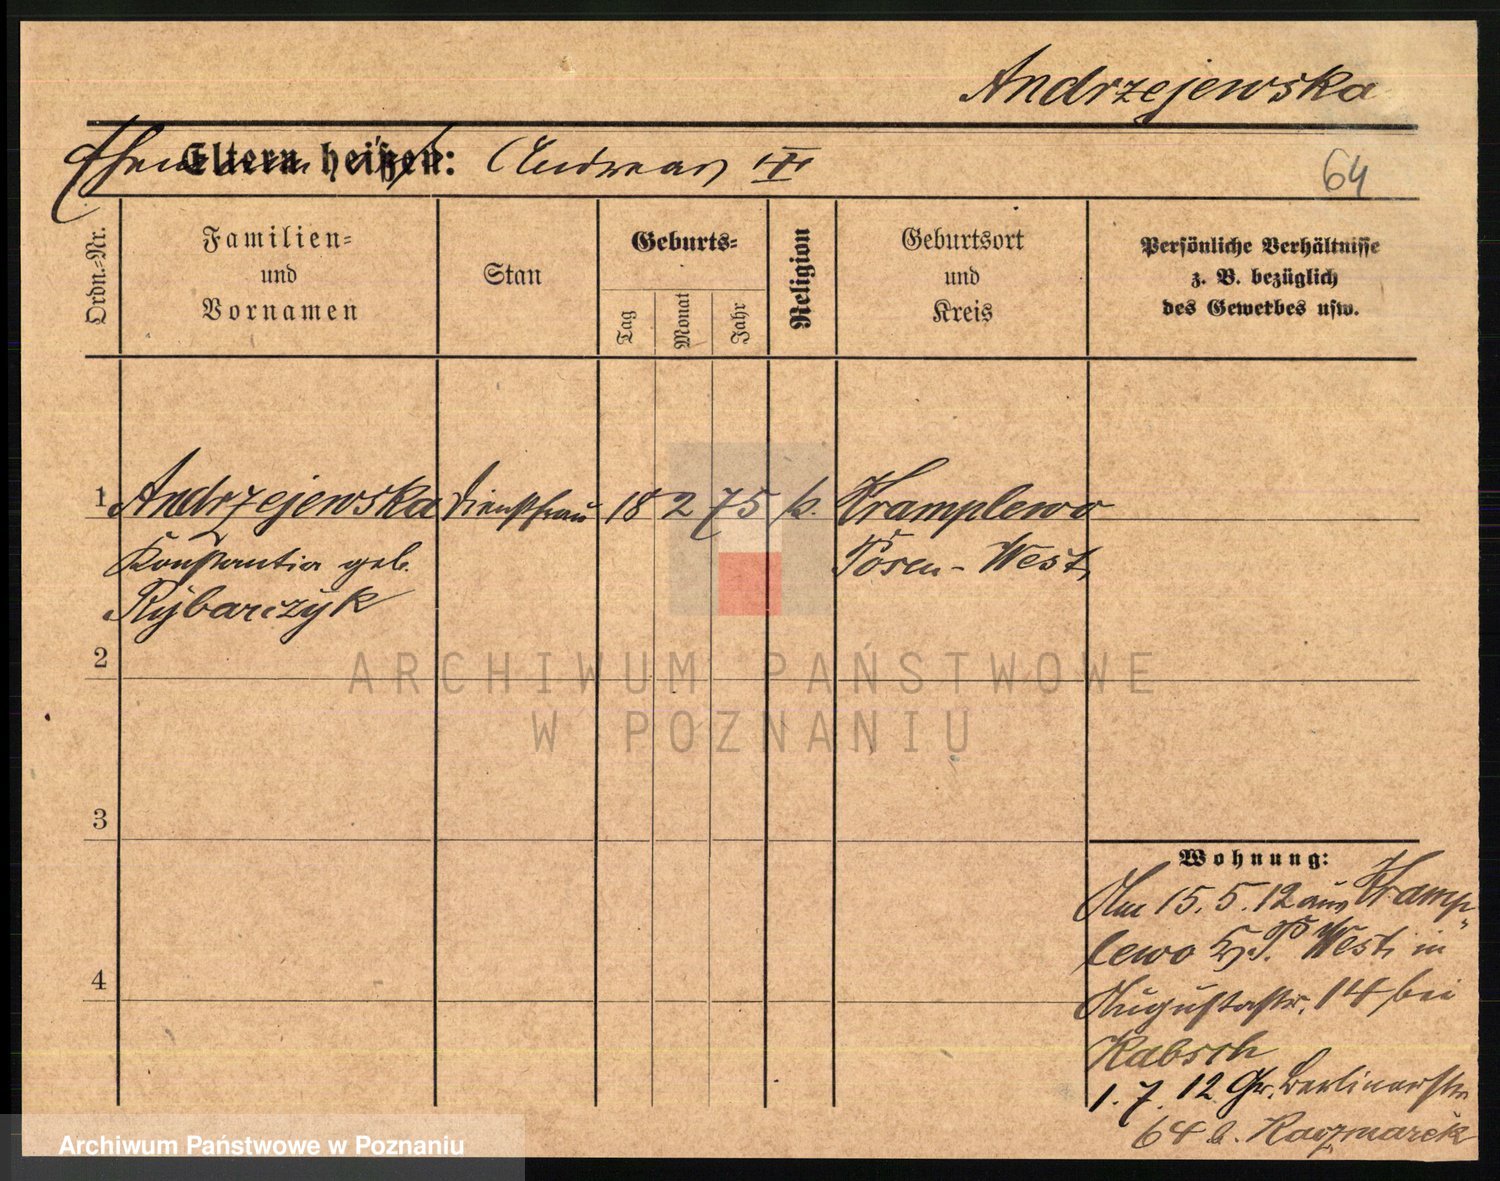 Andrzejewska
Eltern heißen: Andreas III
64
Ordn.-Nr.
Familien-
und
Vornamen
Stan
Geburts-
Tag
Monat
Jahr
Religion
Geburtsort
und
Kreis
Persönliche Verhältnisse
z. B. bezüglich
des Gewerbes usw.
1 Andrzejewska Dienstfrau 18 2 75 k. Kramplewo
Konstantia geb. Posen-West
Rybarczyk
2
3
4
Wohnung:
Am 15.5.12 aus Kramp-
lewo P. West in
Augustastr. 14 bei
Rabsch
1.7.12 Gr. Berlinerstr
64 b. Kaczmarek
ARCHIWUM PAŃSTWOWE
W POZNANIU
Archiwum Państwowe w Poznaniu